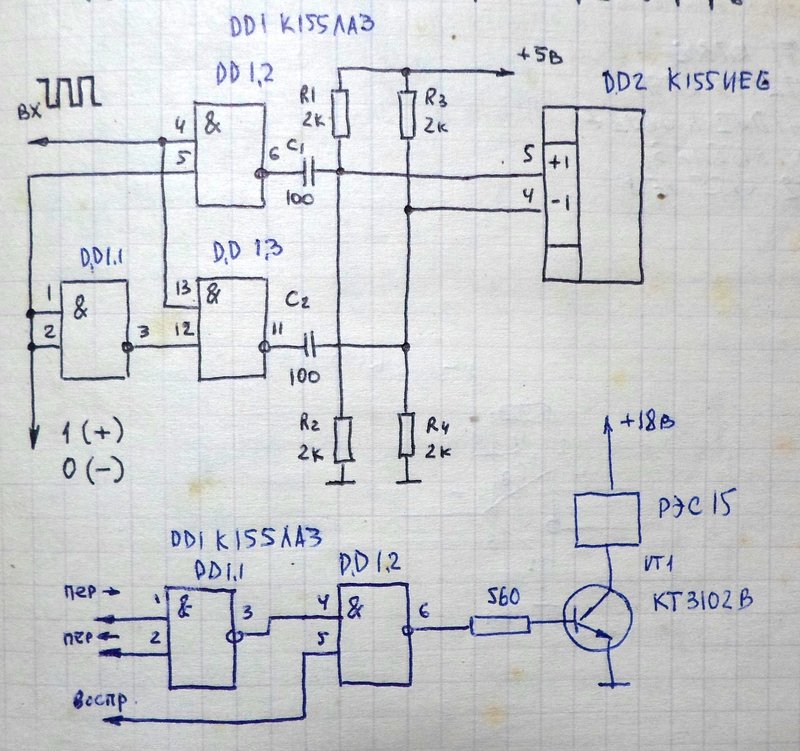 DD1 К155ЛА3
DD1,2
+5В
DD2 К155ИЕ6
ВХ
R1
2к
R3
2к
4
&
5
6
C1
100
5
+1
4
-1
DD1.1
DD1,3
1
&
2
3
13
&
12
11
C2
100
R2
2к
R4
2к
1 (+)
0 (-)
+18В
РЭС 15
DD1 К155ЛА3
DD1.1
DD1.2
VT1
КТ3102В
пер →
1
&
3
4
&
6
560
пер ←
2
5
Воспр.